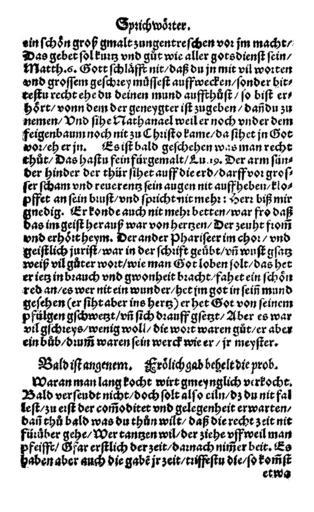 Sprichwörter.
ein schön groß gmalt zungentreschen vor jm macht/
Das gebet sol kurtz und gůt wie aller gotsdienst sein/
Matth. 6. Gott schläfft nit/daß du jn mit vil worten
und grossem geschrey müssest auffwecken/sonder bit-
testu recht ehe du deinen mund auffthůst/so bist er-
hört/vonn dem der geneygter ist zugeben/dañ du zu
nemen/Und sihe Nathanael weil er noch under dem
feigenbaum noch nit zu Christo kame/da sihet jn Got
vor/eh er jn. Es ist bald geschehen was man recht
thůt/Das hastu fein fürgemalt/Lu. 19. Der arm sün-
der hinder der thür sihet auff die erd/darff vor gros-
ser scham und reuerentz sein augen nit auffheben/klo-
pffet an sein brust/und spricht nit mehr: Herr biß mir
gnedig. Er konde auch nit mehr betten/war fro daß
das im geist herauß war von hertzen/Der zeuht from̃
und erhört heym. Der ander Phariseer im chor/und
geistlich jurist/war in der schrift geübt/vñ wust gsatz
weiß vil gůter wort/wie man Got loben solt/das het
er ietz in brauch und gwonheit bracht/fahet ein schön
red an/es wer nit ein wunder/het jm got in sein̄ mund
gesehen (er siht aber ins hertz) er het Got von seinem
pfülgen gschwetzt/vñ sich drauff gsetzt/Aber es war
vil gschreys/wenig woll/die wort waren gůt/er aber
ein bůb/drum̃ waren sein werck wie er/jr meyster.
Bald ist angenem. Frölich gab behelt die prob.
Waran man lang kocht wirt gmeynglich verkocht.
Bald verseudt nicht/doch solt also eiln/dz du nit fal
lest/zu erst der comoditet und gelegenheit erwarten/
dañ thů bald was du thůn wilt/daß die recht zeit nit
fürüber gehe/Wer tantzen wil/der ziehe vff weil man
pfeifft/Gfar erstlich der zeit/darnach nim̃er beit. Es
haben aber auch die gabē jr zeit/triffestu die/so kōmst
etwa